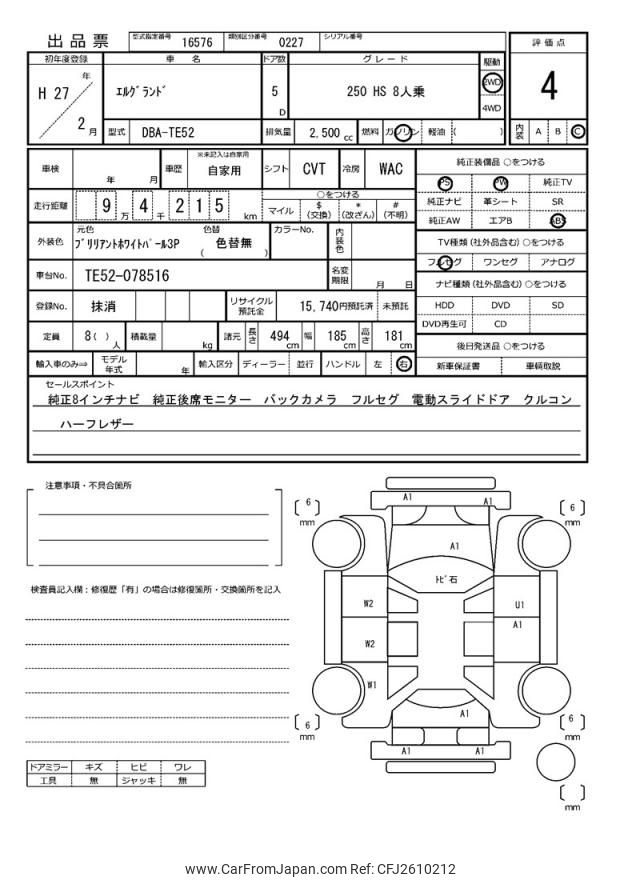 出品票 型式指定番号 16576 類別区分番号 0227 シリアル番号
評価点
4
内装 A B C
初年度登録 車名 ドア数 グレード 駆動
H 27 年 2 月
ｴﾙｸﾞﾗﾝﾄﾞ 5 D 250 HS 8人乗 2WD
4WD
型式 DBA-TE52 排気量 2,500 cc 燃料 ガソリン 軽油 ( )
車検 年 月 車歴 ※未記入は自家用 自家用 シフト CVT 冷房 WAC
走行距離 9 万 4 千 2 1 5 km
○をつける
マイル $ (交換) * (改ざん) # (不明)
外装色 元色 ﾌﾞﾘﾘｱﾝﾄﾎﾜｲﾄﾊﾟｰﾙ3P 色替 ( 色替無 ) カラーNo. 内装色
車台No. TE52-078516 名変期限 月 日
登録No. 抹消 リサイクル預託金 15,740円預託済 未預託
定員 8( ) 人 積載量 kg 諸元 長さ 494 cm 幅 185 cm 高さ 181 cm
輸入車のみ⇒ モデル年式 年 輸入区分 ディーラー 並行 ハンドル 左 右
純正装備品 ○をつける
PS PW 純正TV
純正ナビ 革シート SR
純正AW エアB ABS
TV種類 (社外品含む) ○をつける
フルセグ ワンセグ アナログ
ナビ種類 (社外品含む) ○をつける
HDD DVD SD
DVD再生可 CD
後日発送品 ○をつける
新車保証書 車輌取説
セールスポイント
純正8インチナビ 純正後席モニター バックカメラ フルセグ 電動スライドドア クルコン
ハーフレザー
注意事項・不具合箇所
検査員記入欄：修復歴「有」の場合は修復箇所・交換箇所を記入
ドアミラー キズ ヒビ ワレ
工具 無 ジャッキ 無
A1 A1
6 mm
6 mm
A1
ﾄﾋﾞ石
W2 U1
A1
W2
W1
A1
6 mm
6 mm
A1 A1
mm
www.CarFromJapan.com Ref: CFJ2610212